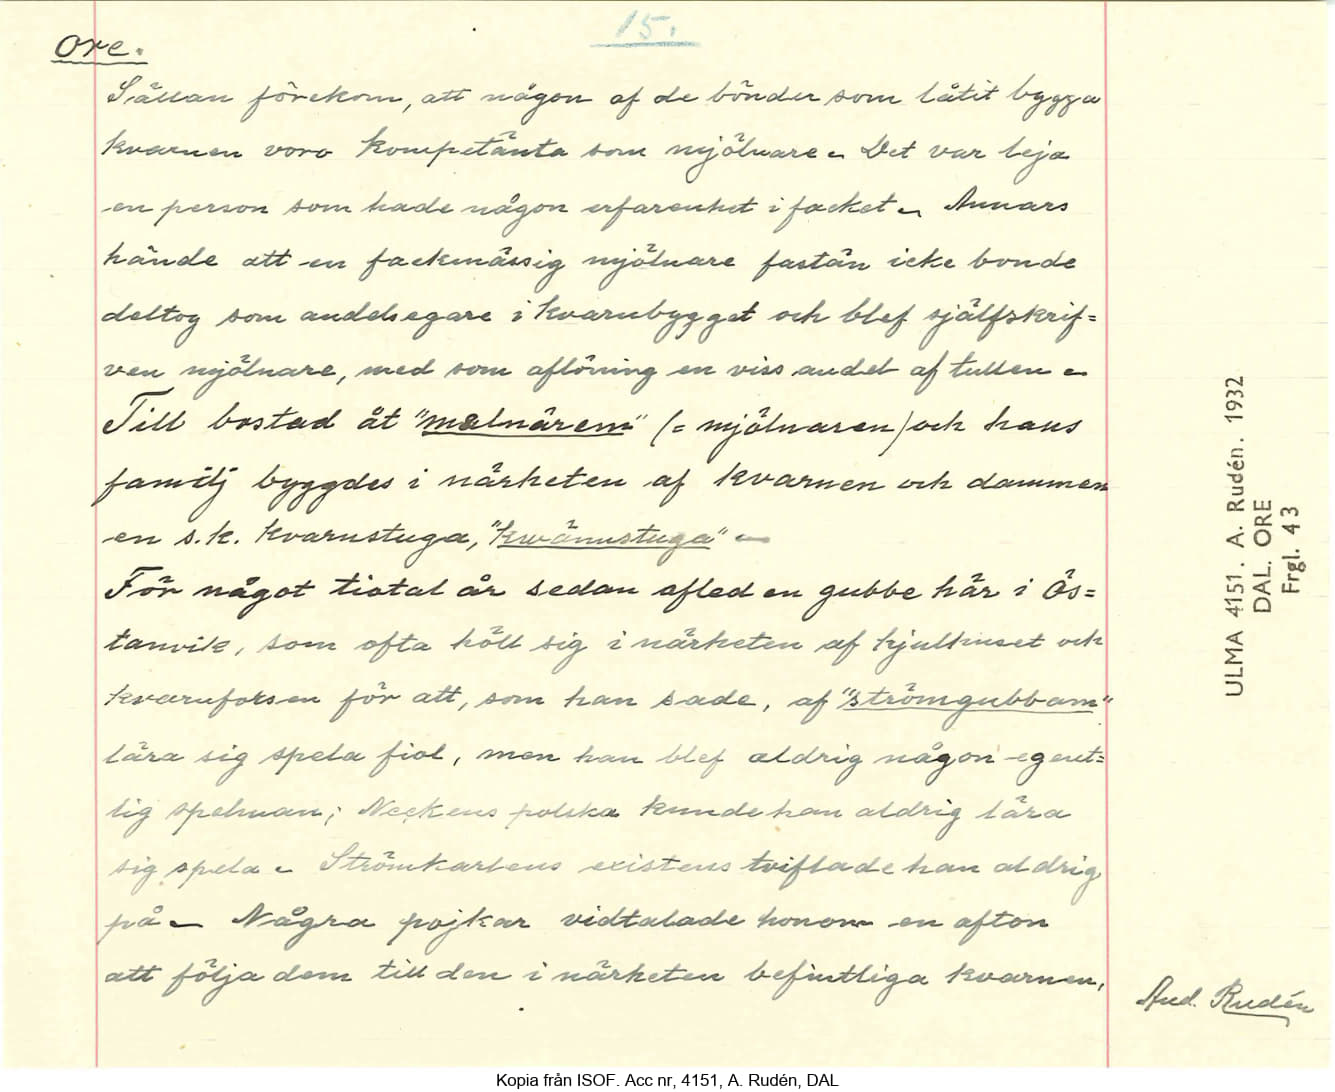 15.
Ore.
Sällan förekom, att någon af de bönder som låtit bygga
kvarnen voro kompetänta som mjölnare. Det var leja
en person som hade någon erfarenhet i facket. Annars
hände att en fackmässig mjölnare fastän icke bonde
deltog som andelsegare i kvarnbygget och blef självskrif=
ven mjölnare, med som aflöning en viss andel af tullen.
Till bostad åt "malnären" (= mjölnaren) och hans
familj byggdes i närheten af kvarnen och dammen
en s.k. kvarnstuga, "kwännstuga".
För något tiotal år sedan afled en gubbe här i Ös=
tanvik, som ofta höll sig i närheten af hjulhuset och
kvarnforsen för att, som han sade, af "strömgubbam"
lära sig spela fiol, men han blef aldrig någon egent=
lig spelman; Neckens polska kunde han aldrig lära
sig spela. Strömkarlens existens tviflade han aldrig
på. Några pojkar vidtalade honom en afton
att följa dem till den i närheten befintliga kvarnen,
And. Rudén
ULMA 4151. A. Rudén. 1932
DAL. ORE
Frgl. 43
Kopia från ISOF. Acc nr, 4151, A. Rudén, DAL